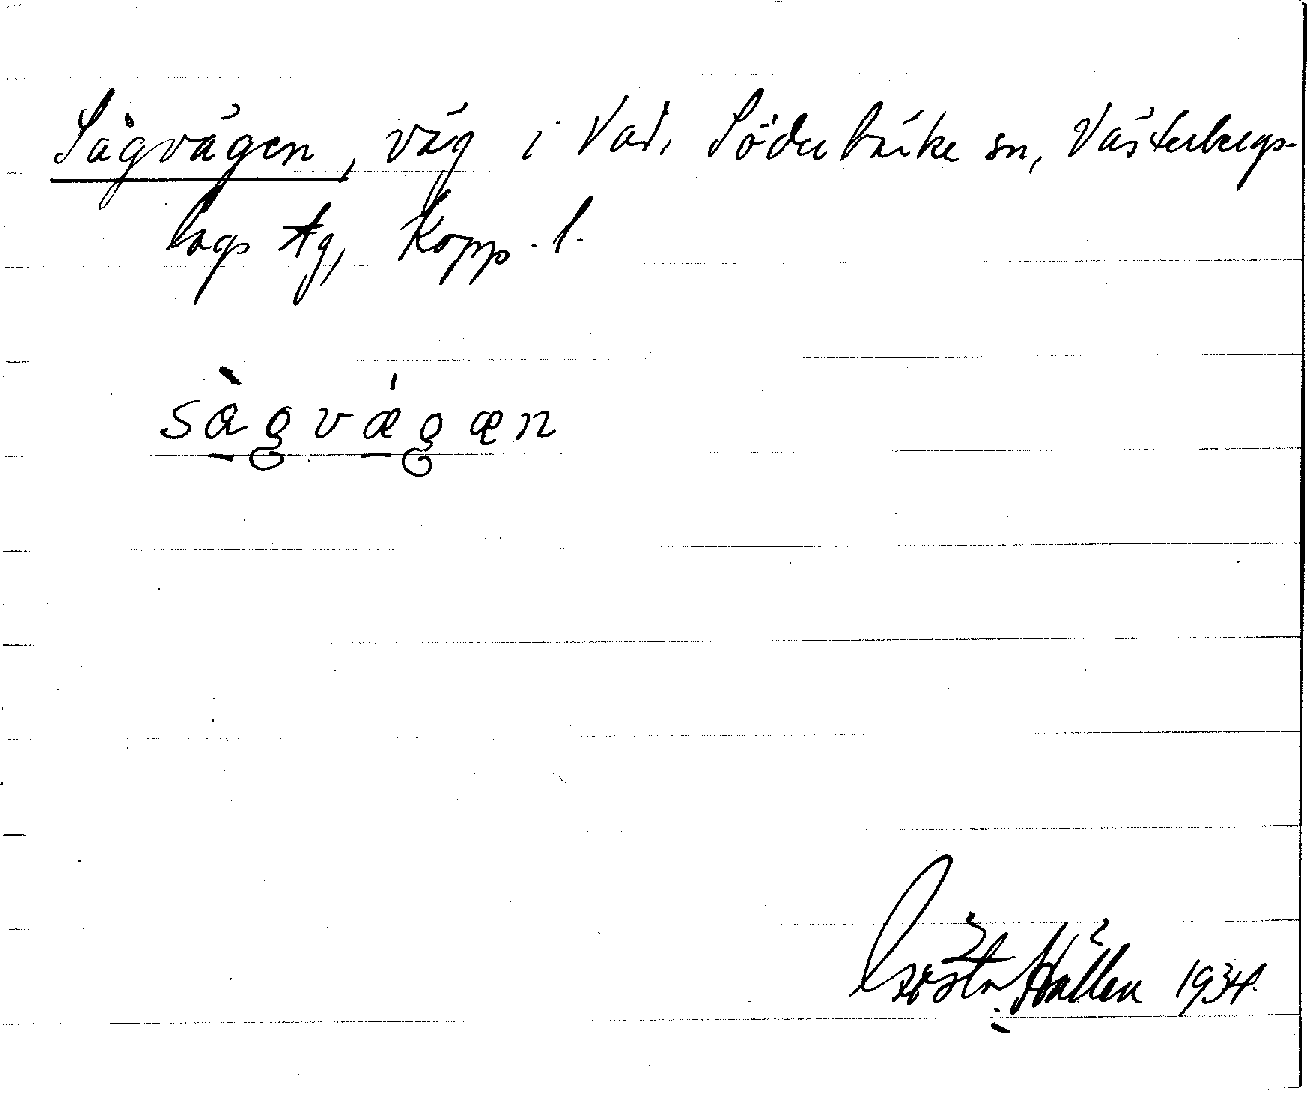 Sågvägen, väg i Vad, Söderbärke sn, Västerbergs-
lags tg, Kopp. l.
sàgvǽgæn
Gösta Hållen 1934.